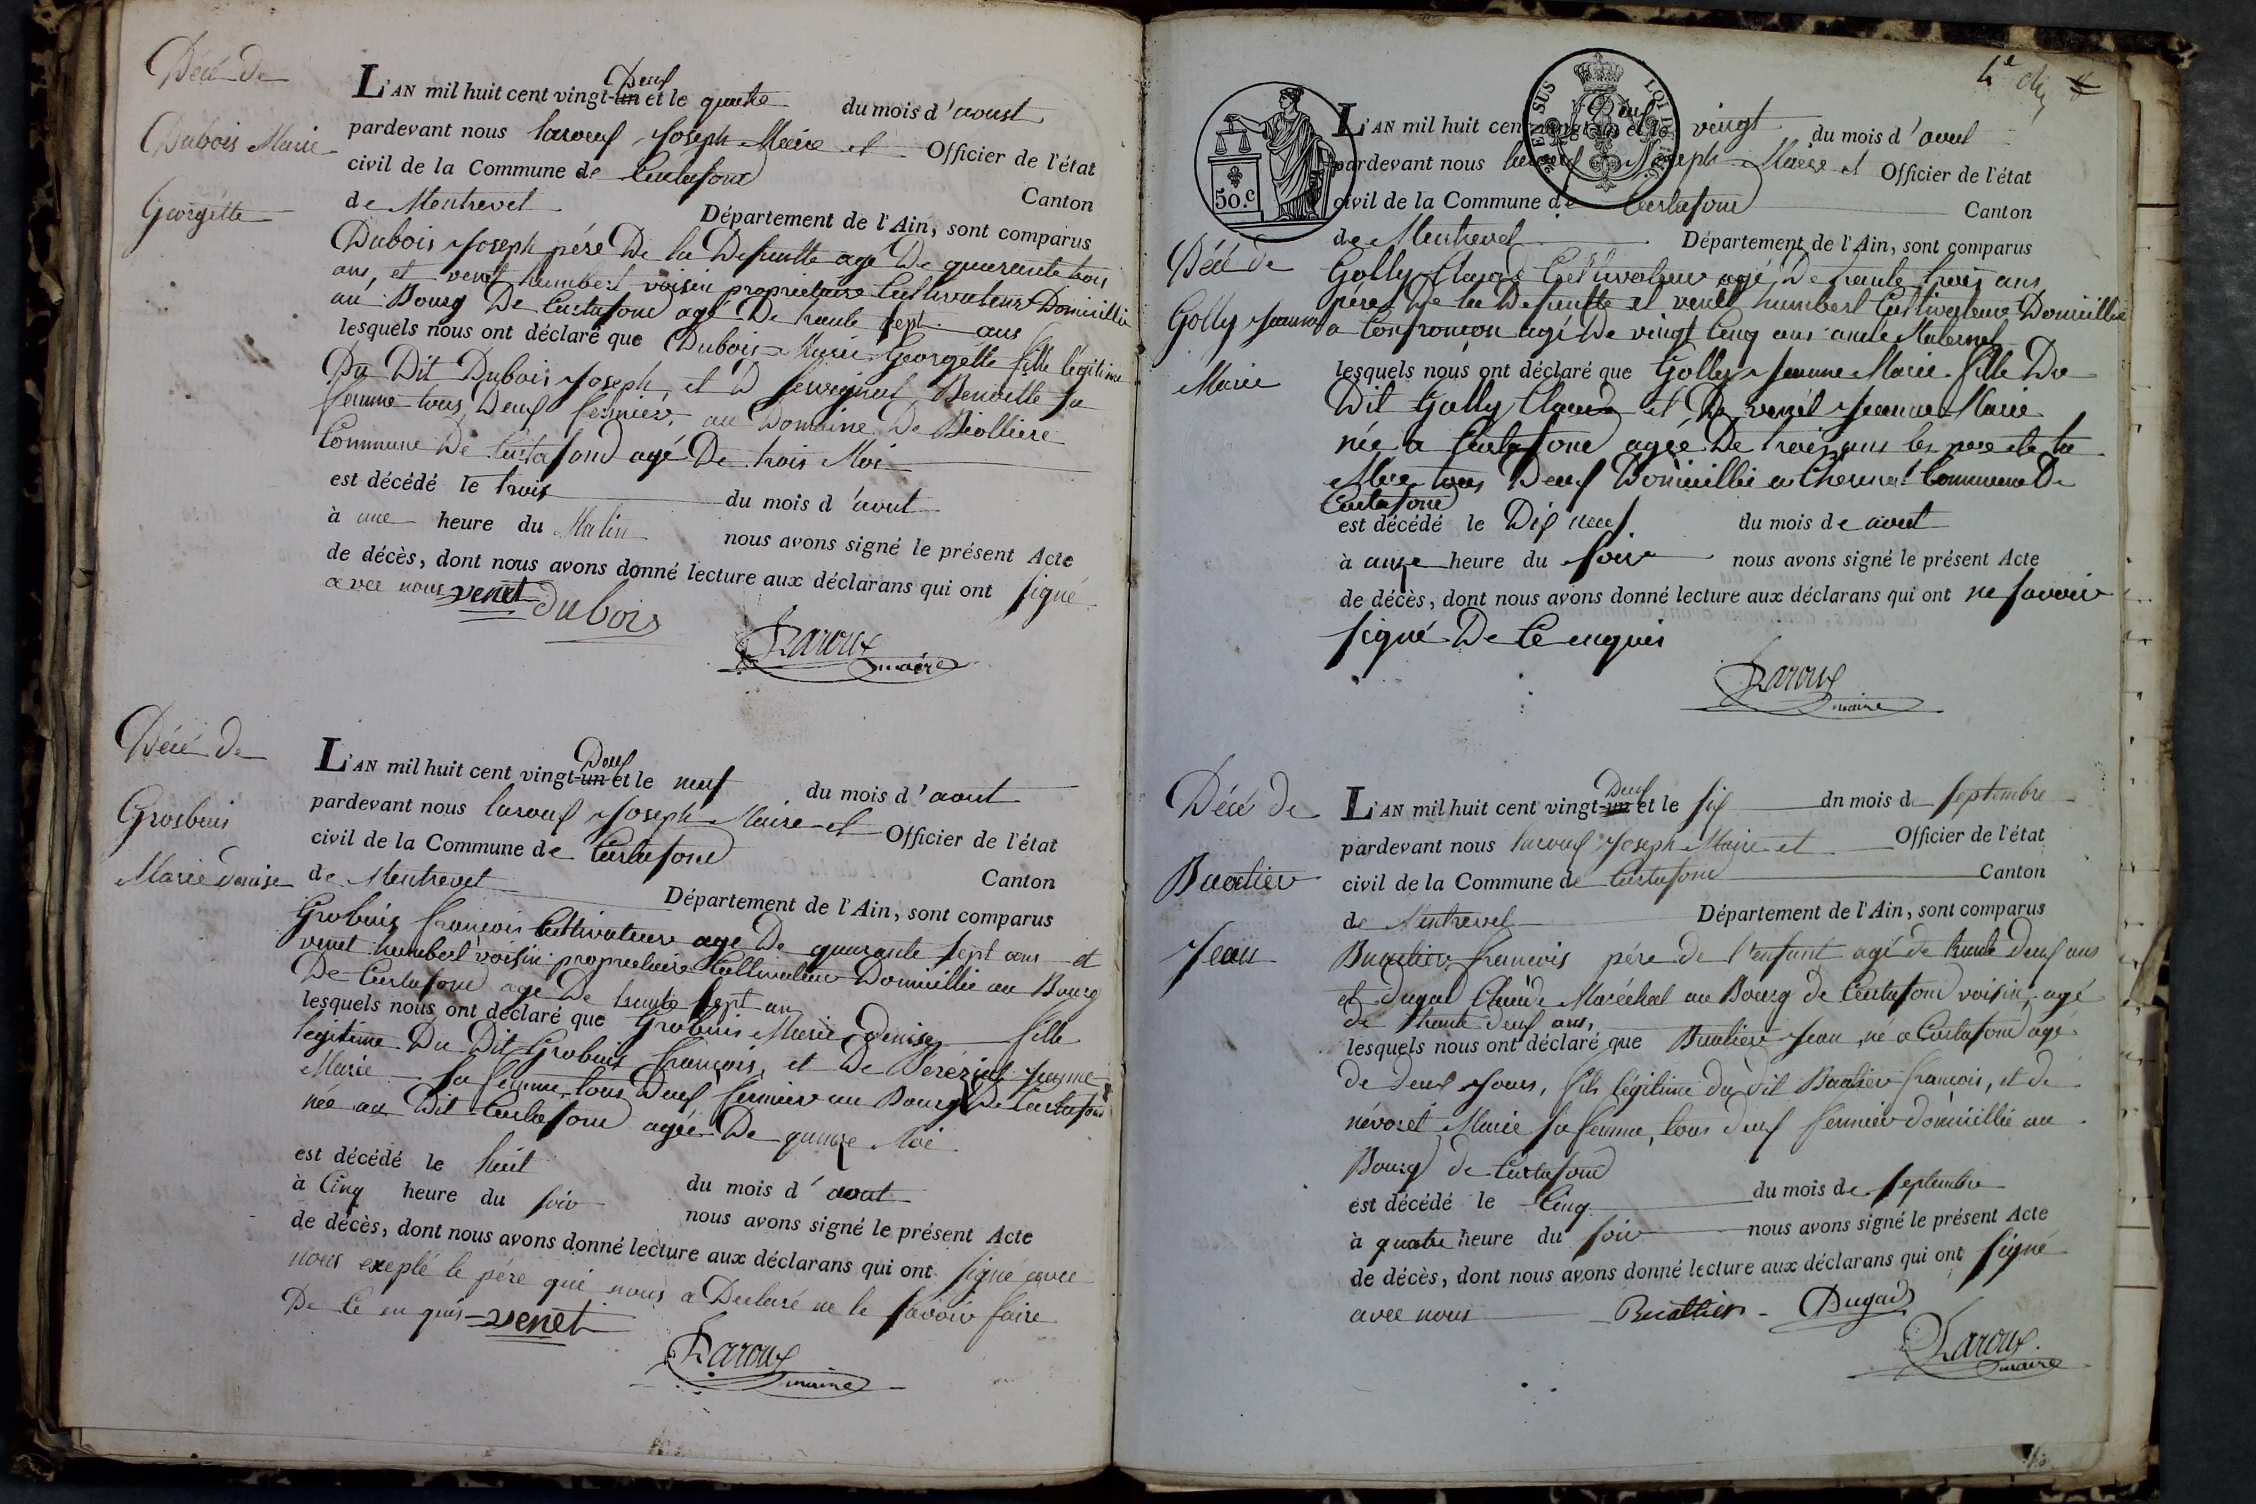 Décé de
Dubois Marie
Georgette
L'AN mil huit cent vingt-un Deux et le quatre du mois d'aoust
pardevant nous laroux Joseph Maire et Officier de l'état
civil de la Commune de Curtafond Canton
de Montrevel Département de l'Ain, sont comparus
Dubois Joseph pére De la Defunte agé De quarante trois
ans, et venet humbert voisin propriétaire Cultivateur Domicillié
au Bourg De Curtafond agé De trente sept ans
lesquels nous ont déclaré que Dubois Marie Georgette fille légitime
Du Dit Dubois Joseph et D Benoitte sa
femme tous Deux fermier, au Domaine De Biolliere
Commune De Curtafond agé De trois Moi
est décédé le trois du mois d'aout
à une heure du Matin nous avons signé le présent Acte
de décès, dont nous avons donné lecture aux déclarans qui ont signé
avec nous venet dubois
Laroux
maire
Décé de
Grosbuis
Marie denise
L'AN mil huit cent vingt-un Deux et le neuf du mois d'aout
pardevant nous laroux Joseph Maire et Officier de l'état
civil de la Commune de Curtafond Canton
de Montrevel Département de l'Ain, sont comparus
Grobuis françois Cultivateur agé De quarante sept ans et
venet humbert voisin propriétaire Cultivateur Domicillié au Bourg
De Curtafond agé De trente sept an
lesquels nous ont déclaré que Grobuis Marie denise fille
legitime Du Dit Grobuis françois, et De Perézial
Marie sa femme, tous Deux fermier au Bourg De Curtafond
née au Dit Curtafond agée De quinze Moi
est décédé le huit du mois d'aout
à Cinq heure du soir nous avons signé le présent Acte
de décès, dont nous avons donné lecture aux déclarans qui ont signé avec
nous exepté le pére qui nous a Declaré ne le savoir faire
De Ce en quis venet
Laroux
maire
4e
50.c
EN SUS
LOI DE 1816.
L'AN mil huit cent vingt-un Deux et le vingt du mois d'aout
pardevant nous laroux Joseph Maire et Officier de l'état
civil de la Commune de Curtafond Canton
de Montrevel Département de l'Ain, sont comparus
Décé de
Golly Jeanne
Marie
Golly Claude Cultivateur agé De trente trois ans
pére De la Defunte et venet humbert Cultivateur Domicillié
a Confrançon agé De vingt Cinq ans oncle Maternel
lesquels nous ont déclaré que Golly Jeanne Marie fille Du
Dit Golly Claude et De venét Jeanne Marie
née a Curtafond agée De trois ans les pere et la
Mere tous Deux Domicillié a Commune De
Curtafond
est décédé le Dix neuf du mois de aout
à onze heure du soir nous avons signé le présent Acte
de décès, dont nous avons donné lecture aux déclarans qui ont ne savoir
signé De Ce enquis
Laroux
maire
Décé de
Buatier
Jean
L'AN mil huit cent vingt-un Deux et le six dn mois de septembre
pardevant nous laroux Joseph Maire et Officier de l'état
civil de la Commune de Curtafond Canton
de Montrevel Département de l'Ain, sont comparus
Buatier francois pére de l'enfant agé de trente deux ans
et dugad Claude Maréchal au Bourg de Curtafond voisin, agé
de trante deux ans,
lesquels nous ont déclaré que Buatier Jean, né a Curtafond agé
de deux Jours, fils légitime du dit Buatier francois, et de
névoret Marie sa femme, tous deux fermier domicillié au
Bourg de Curtafond
est décédé le Cinq du mois de septembre
à quatre heure du soir nous avons signé le présent Acte
de décès, dont nous avons donné lecture aux déclarans qui ont signé
avec nous Buattier Dugad
Laroux
maire